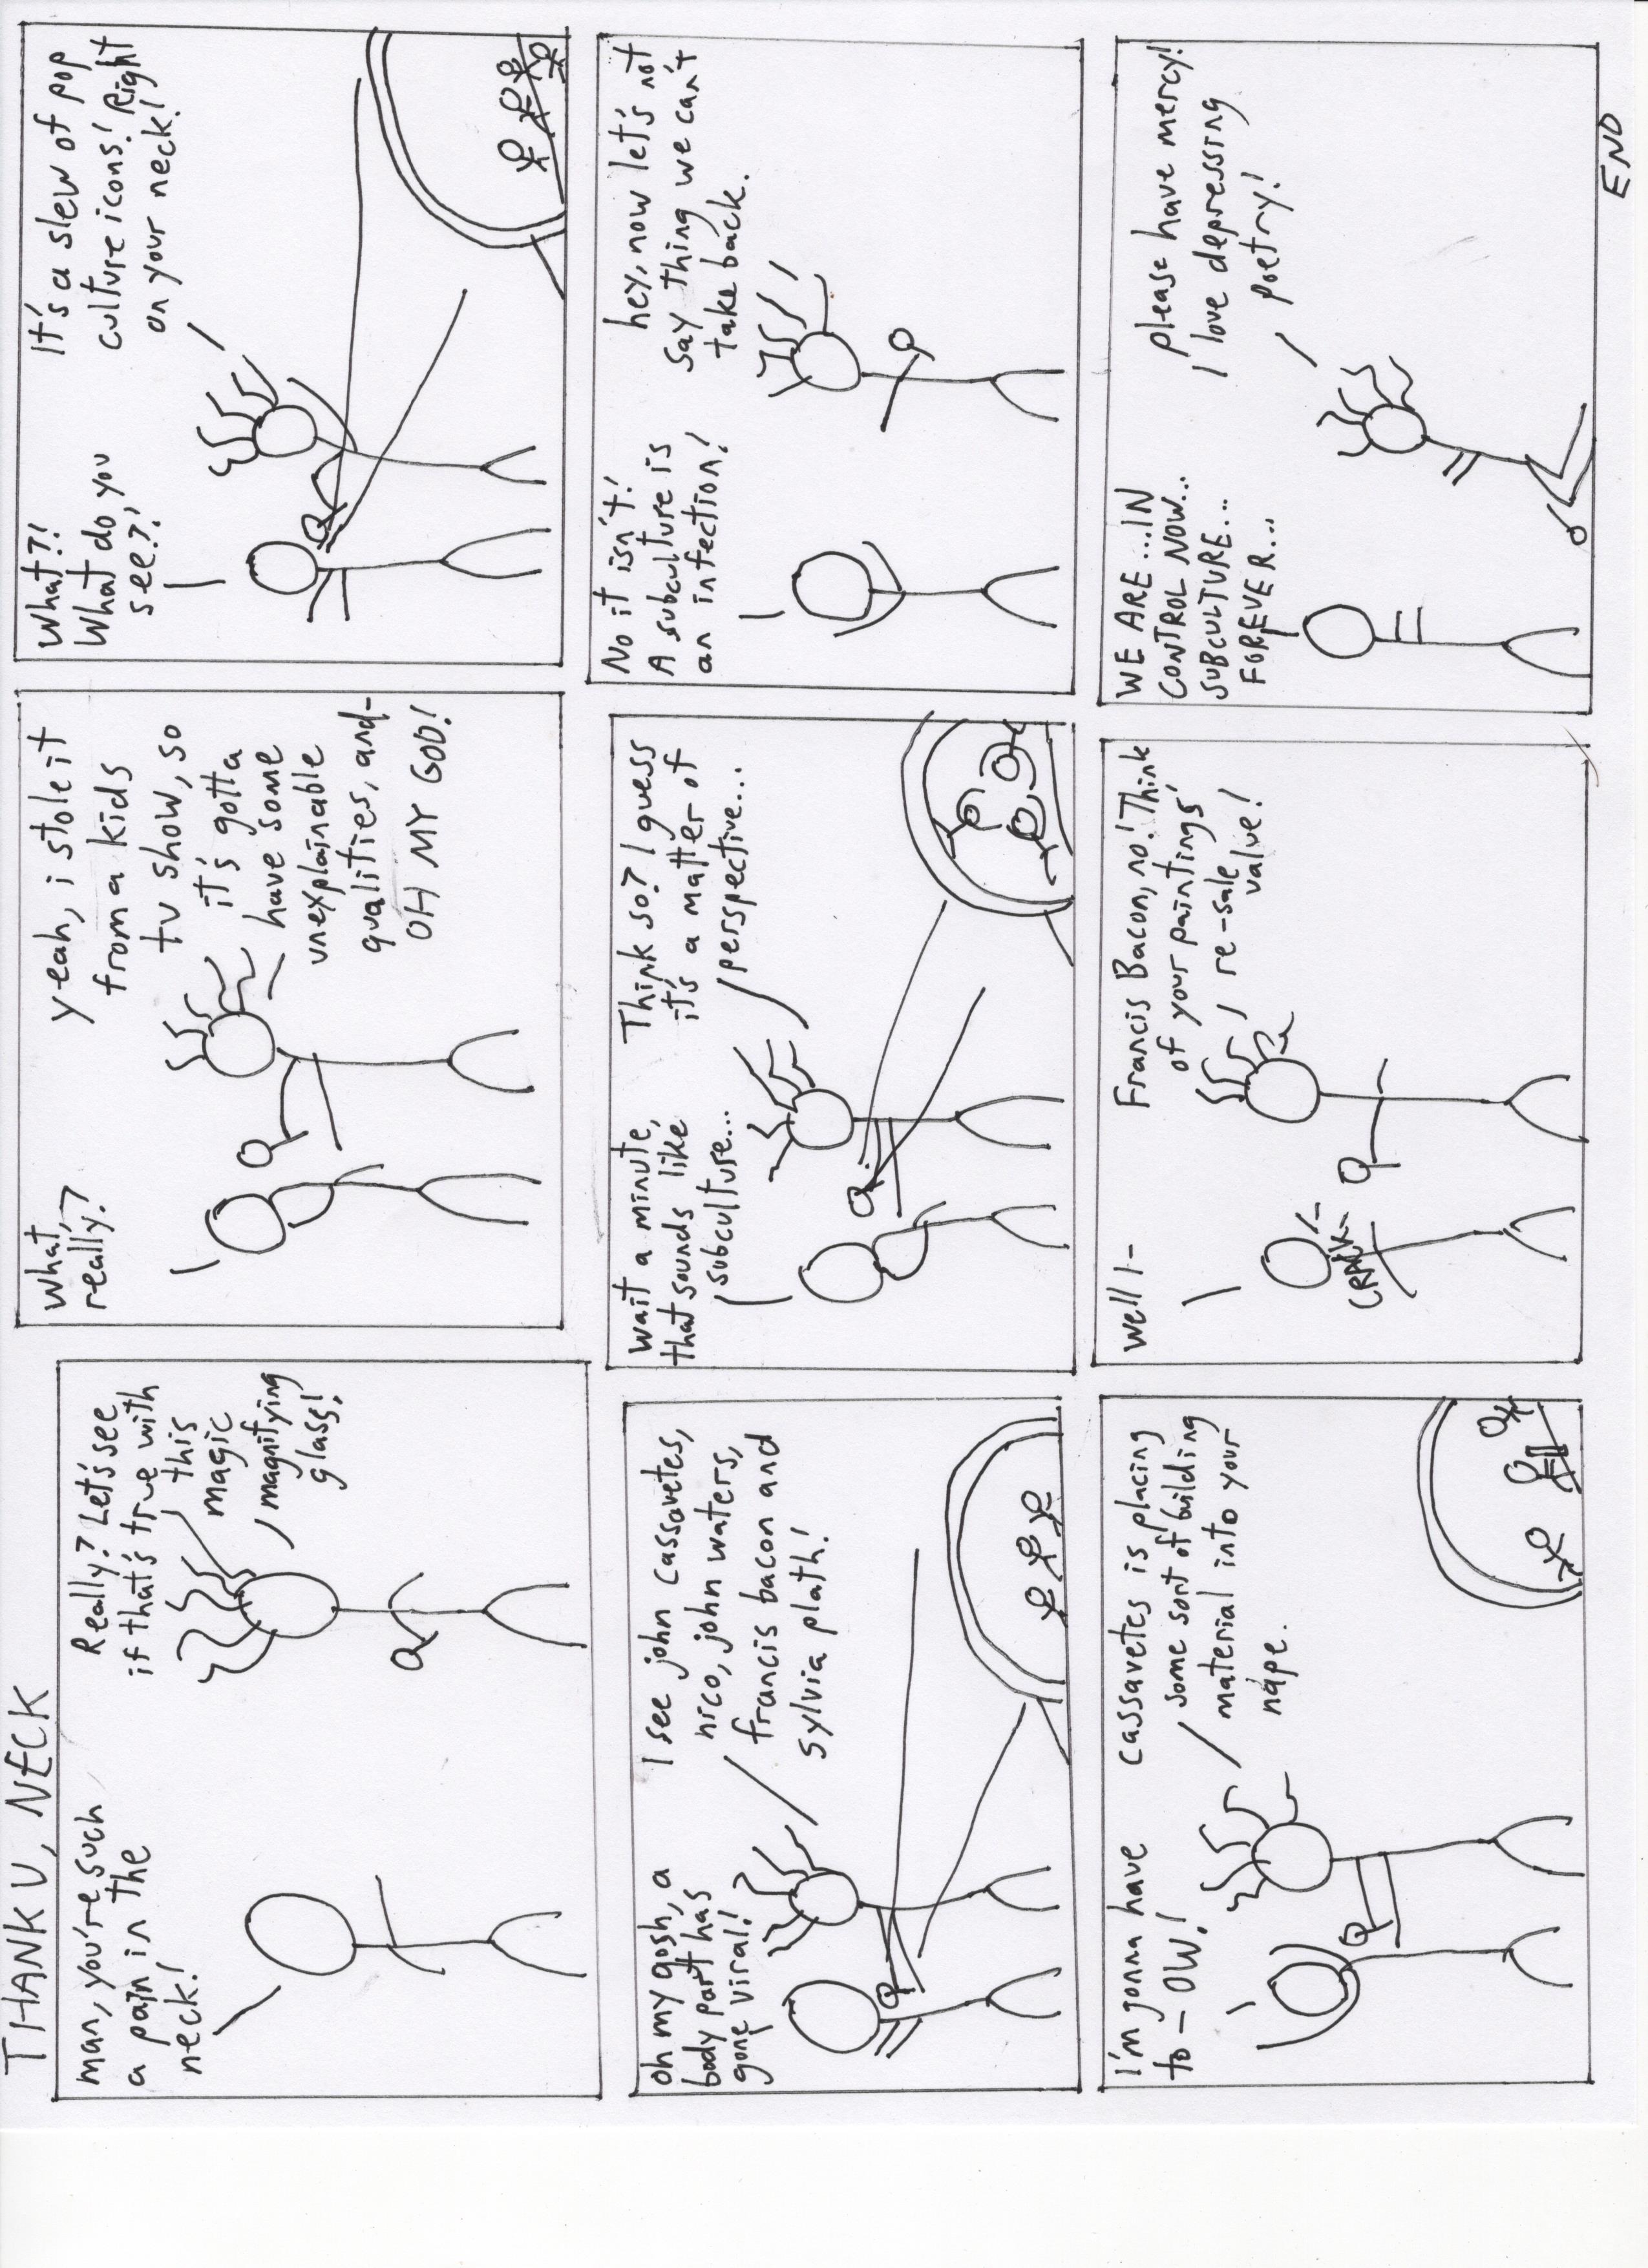 THANK U, NECK
man, you're such
a pain in the
neck!
Really? Let's see
if that's true with
this
magic
magnifying
glass!
what,
really?
yeah, i stole it
from a kids
tv show, so
it's gotta
have some
unexplainable
qualities, and-
OH MY GOD!
What?!
What do you
see?!
It's a slew of pop
culture icons! Right
on your neck!
oh my gosh, a
body part has
gone viral!
I see john cassavetes,
nico, john waters,
francis bacon and
sylvia plath!
wait a minute,
that sounds like
subculture...
Think so? I guess
it's a matter of
perspective...
No it isn't!
A subculture is
an infection!
hey, now let's not
say thing we can't
take back.
I'm gonna have
to - OW!
cassavetes is placing
some sort of building
material into your
nape.
well I-
CRACK
Francis Bacon, no! Think
of your paintings'
re-sale
value!
WE ARE...IN
CONTROL NOW...
SUBCULTURE...
FOREVER...
please have mercy!
I love depressing
poetry!
END